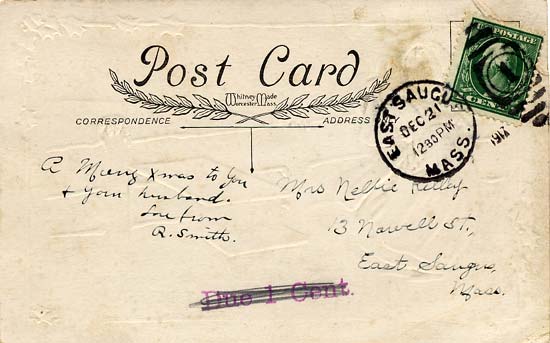 Post Card
Whitney Made
Worcester, Mass.
CORRESPONDENCE
ADDRESS
U.S. POSTAGE
1
CENT
EAST SAUGUS
DEC 21
1230 PM
MASS.
1917
A Merry Xmas to You
& Your husband.
Love from
R. Smith.
Mrs Nellie Kelley
13 Newell St.,
East Saugus,
Mass.
Due 1 Cent.